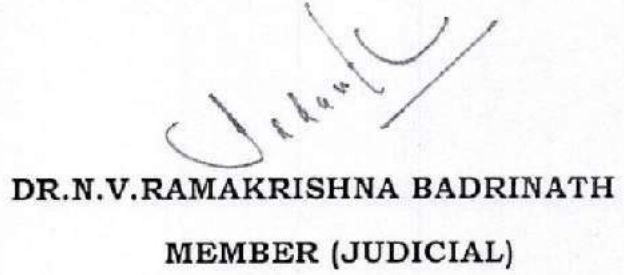 DR.N.V.RAMAKRISHNA BADRINATH
MEMBER (JUDICIAL)